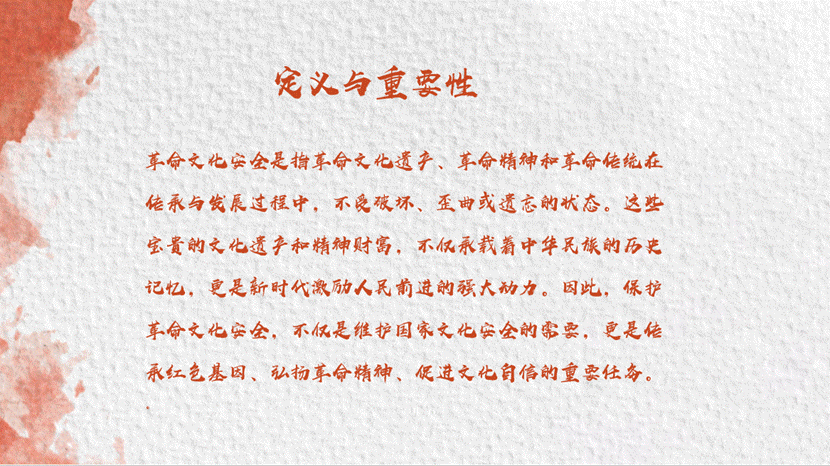 定义与重要性
革命文化安全是指革命文化遗产、革命精神和革命传统在
传承与发展过程中，不受破坏、歪曲或遗忘的状态。这些
宝贵的文化遗产和精神财富，不仅承载着中华民族的历史
记忆，更是新时代激励人民前进的强大动力。因此，保护
革命文化安全，不仅是维护国家文化安全的需要，更是传
承红色基因、弘扬革命精神、促进文化自信的重要任务。
.